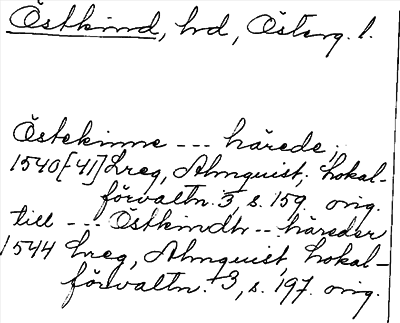 Östkind, hd, Österg. l.
Östekinne --- härede;
1540[41] Lreg, Almquist, Lokal-
förvaltn. 3, s. 159. orig.
till --- Östkindh -- häreder
1544 Lreg, Almquist, Lokal-
förvaltn. 3, s. 197. orig.